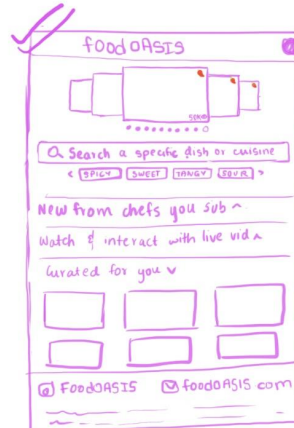 food OASIS
Search a specific dish or cuisine
< SPICY SWEET TANGY SOUR >
New from chefs you sub ^
Watch & interact with live vid ^
Curated for you v
FOODOASIS foodOASIS com